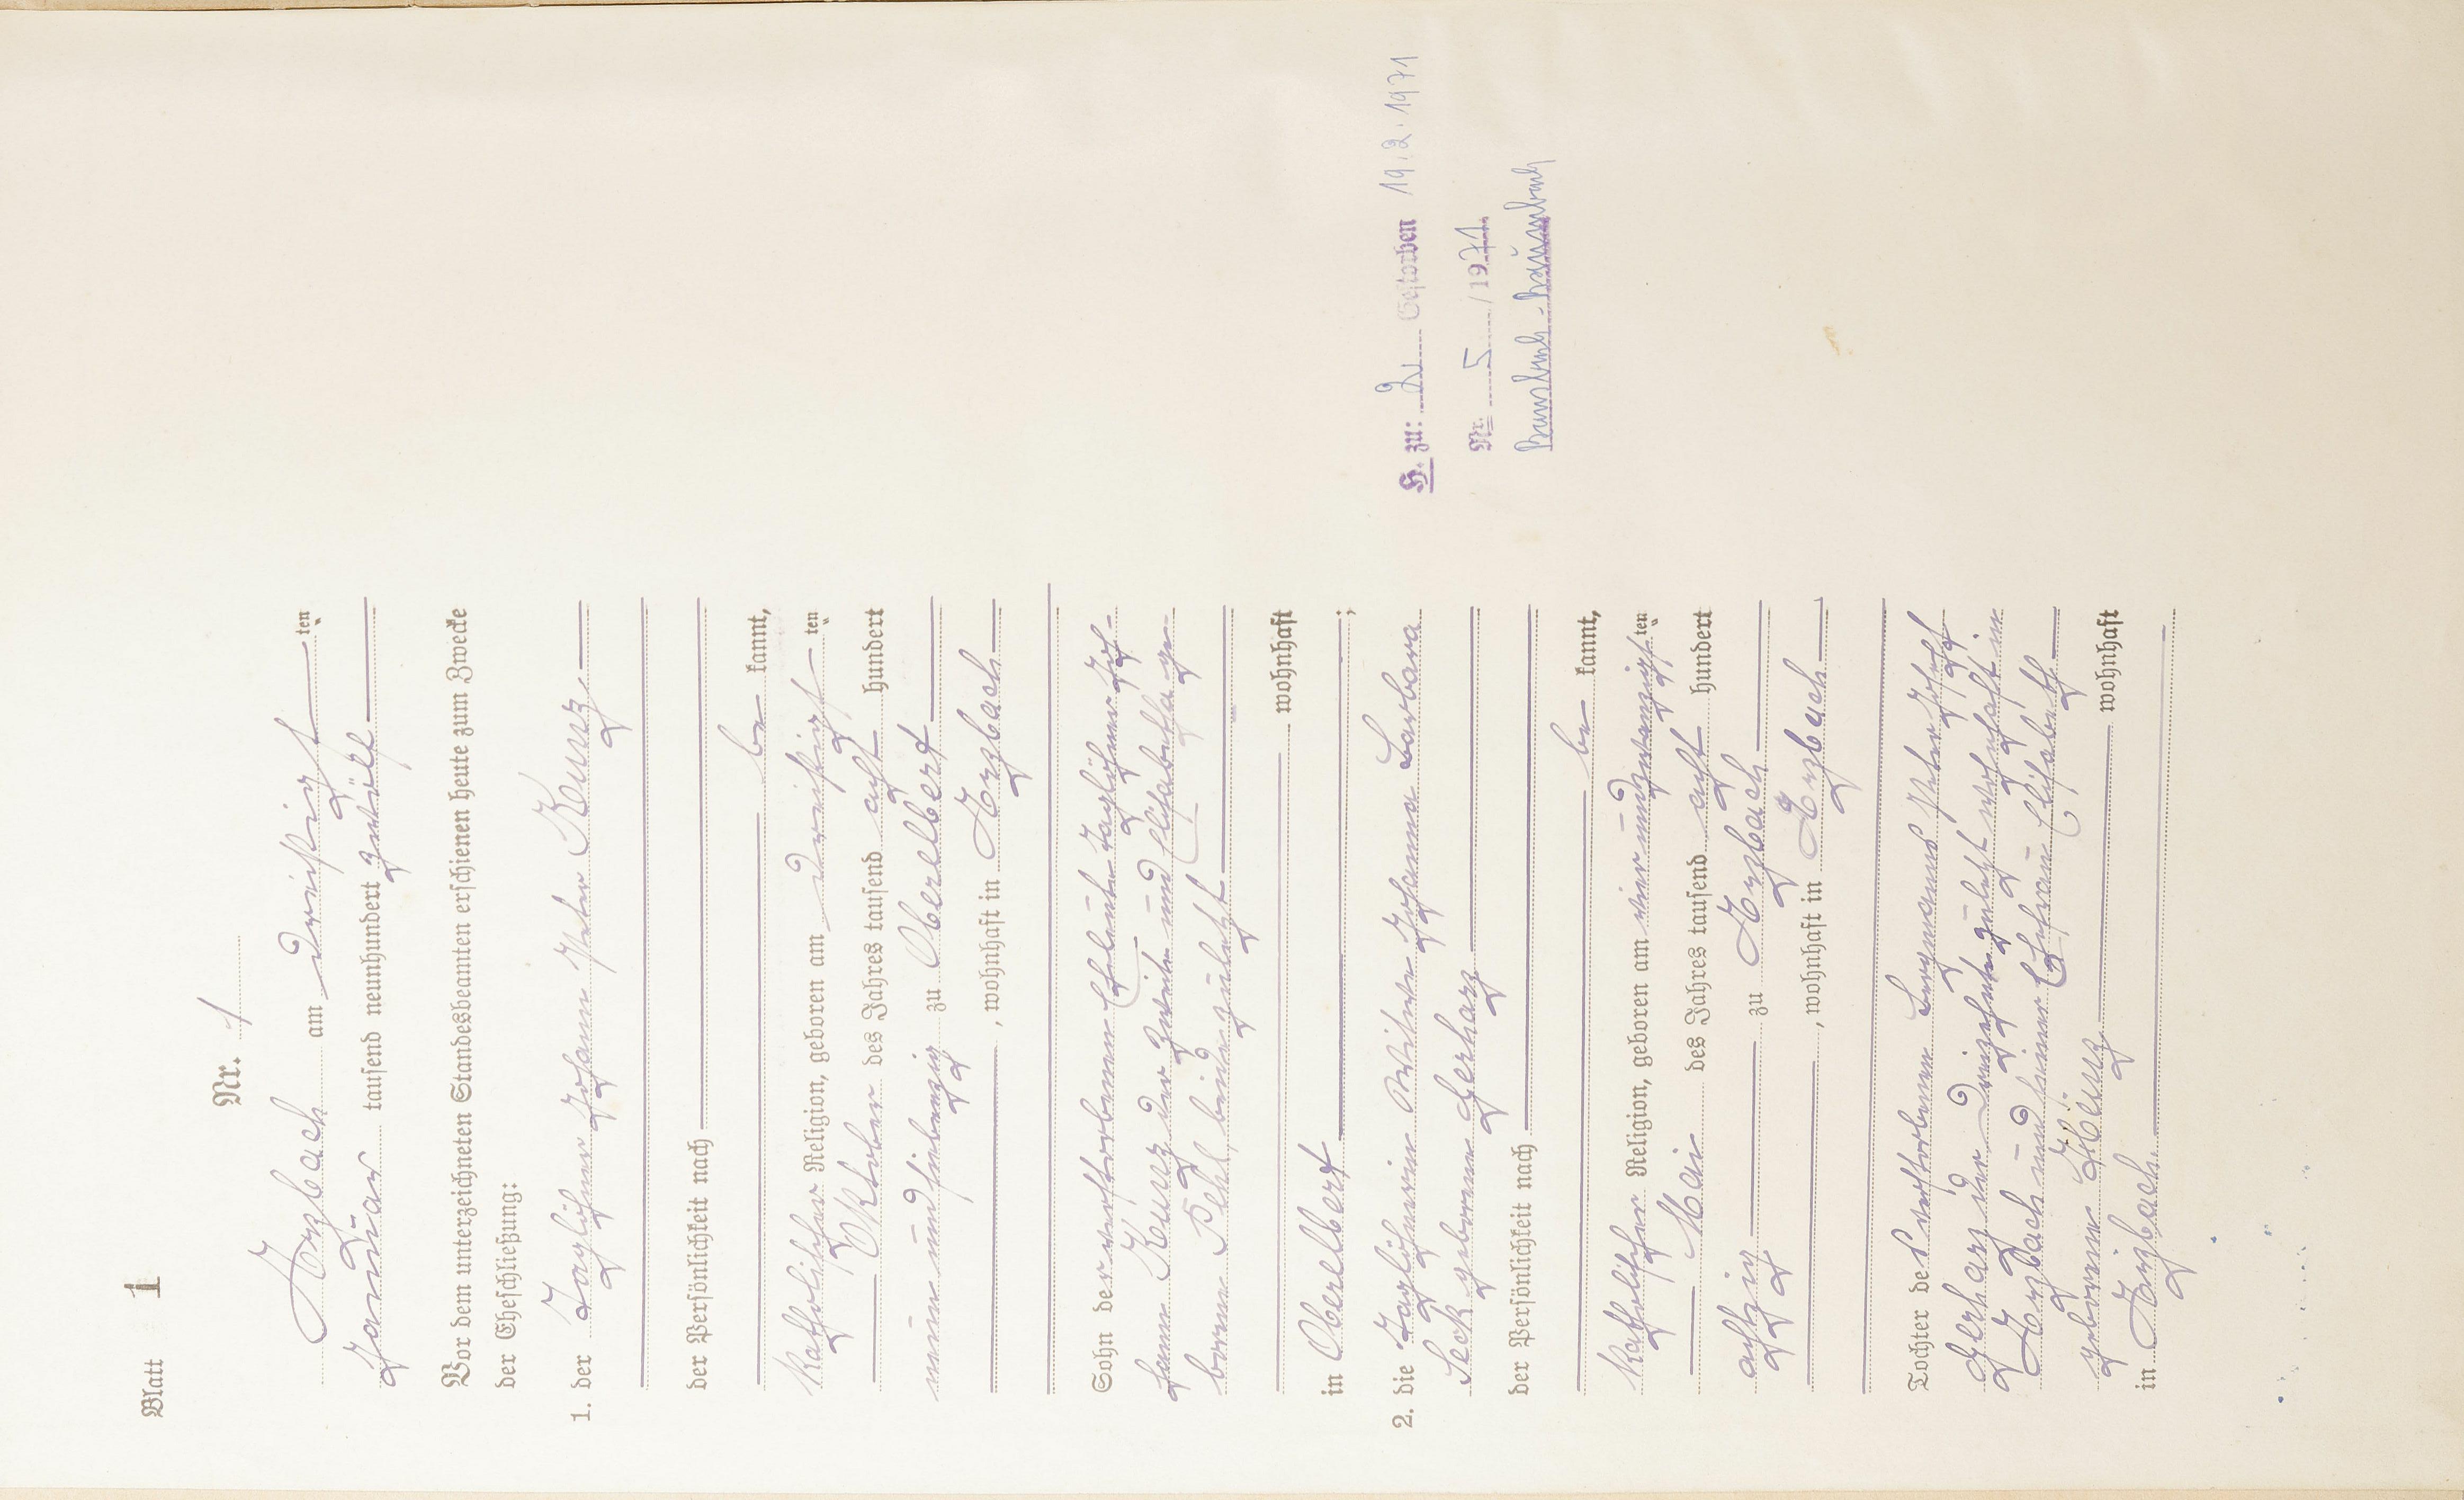 Blatt 1
Nr. 1
Arzbach am dreißigs ten
Januar tausend neunhundert zwölf
Vor dem unterzeichneten Standesbeamten erschienen heute zum Zwecke
der Eheschließung:
1. der Taglöhner Johann Peter Kunz,
der Persönlichkeit nach
be kannt,
katholischer Religion, geboren am dreißigs ten
Oktober des Jahres tausend acht hundert
neun und siebenzig zu Oberelbert
, wohnhaft in Arzbach
Sohn der verstorbenen Eheleute Taglöhner Jo-
hann Kunz der Zweite und Elisabetha ge-
borene Pehl, beide zuletzt
wohnhaft
in Oberelbert ;
2. die Taglöhnerin Witwe Johanna Barbara
Seck geborene Gerharz
der Persönlichkeit nach
be kannt,
katholischer Religion, geboren am vier und zwanzigs ten
Mai des Jahres tausend acht hundert
achtzig zu Arzbach
, wohnhaft in Arzbach
Tochter des verstorbenen Bergmanns Peter Josef
Gerharz der Dreizehnte, zuletzt wohnhaft in
Arzbach und seiner Ehefrau Elisabeth
geborene wohnhaft
in Arzbach.
H. zu: 2. Gestorben 19.2.1971
Nr. 5 / 1971
Ransbach-Baumbach